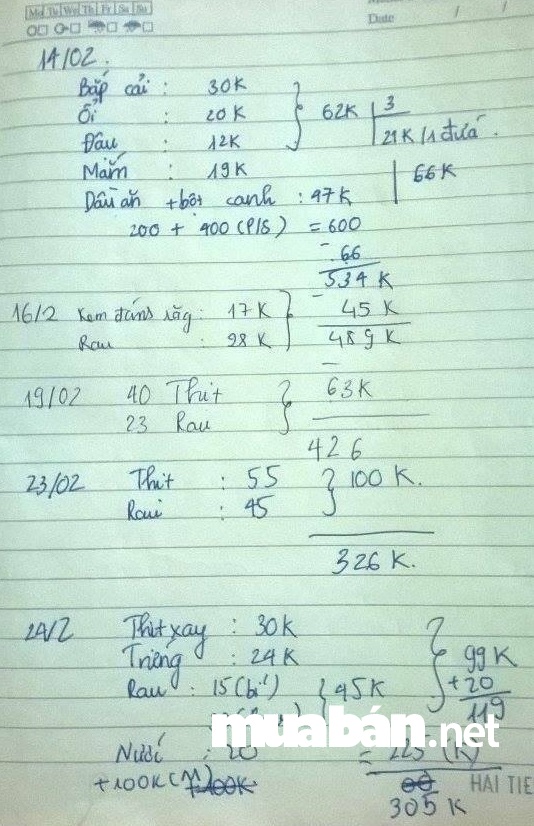 Mo Tu We Th Fr Sa Su
Date / /
14/02.
Bắp cải : 30K
Ổi : 20K } 62K | 3
Đậu : 12K 21K /1 đứa.
Mắm : 19K
Dầu ăn + bột canh : 47K | 66K
200 + 400 (P/S) = 600
- 66
534 K
16/2 Kem đánh răg : 17K } - 45 K
Rau : 28 K 489 K
19/02 40 Thịt } - 63K
23 Rau
426
23/02 Thịt : 55 } 100 K.
Rau : 45
326 K.
24/2 Thịt xay : 30K
Trứng : 24K } 99K
Rau : 15 (bí) } 45K + 20
119
muaban.net
: 20 = 225 (K)
+100K (M) +100K
HAI TIE
305 K